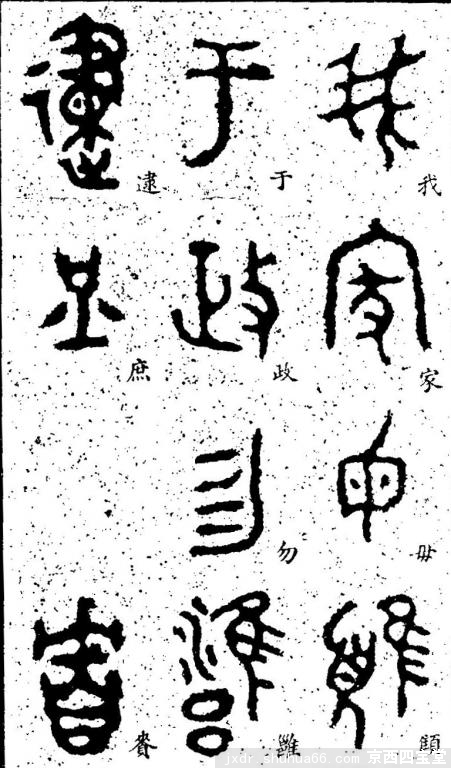 我家毋
于政勿雝
逮庶
jxdr.shuhua66.com 京西四宝堂